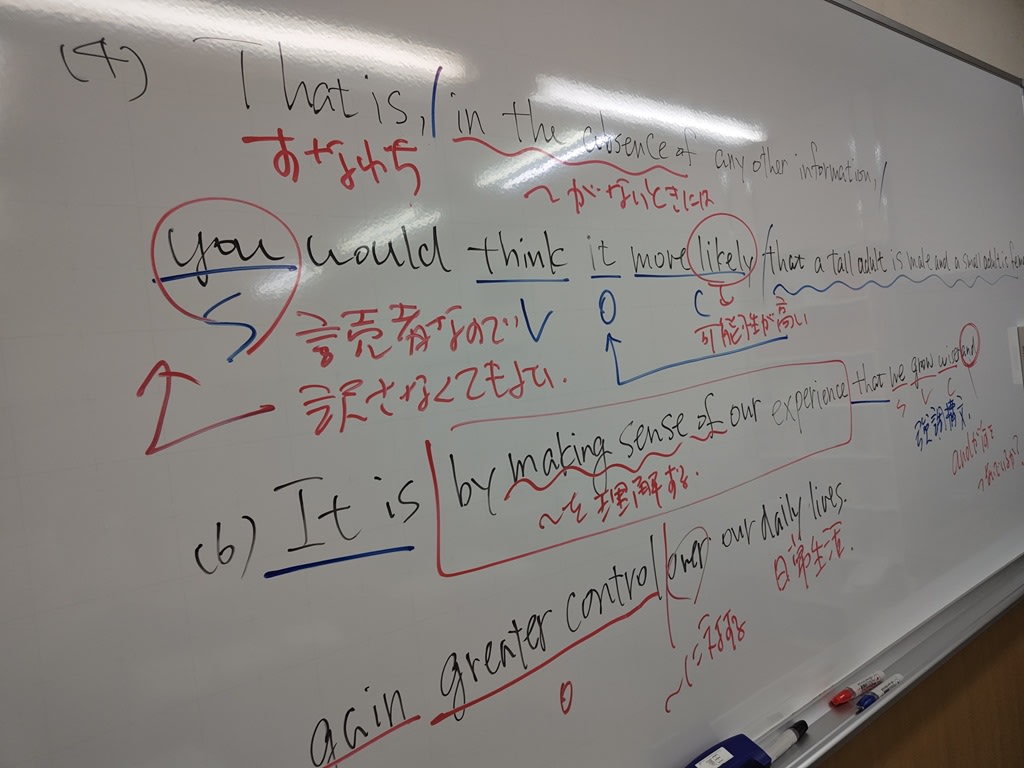 (4) That is, / in the absence of any other information, /
すなわち
～がないときには
you would think it more likely / that a tall adult is male and a small adult is
S V O C
読者なので、
訳さなくてもよい.
可能性が高い
(6) It is by making sense of our experience that we grow wiser and
S V C
～を理解する.
強調構文
andが何
gain greater control / over our daily lives.
O
～に対する
日常生活.